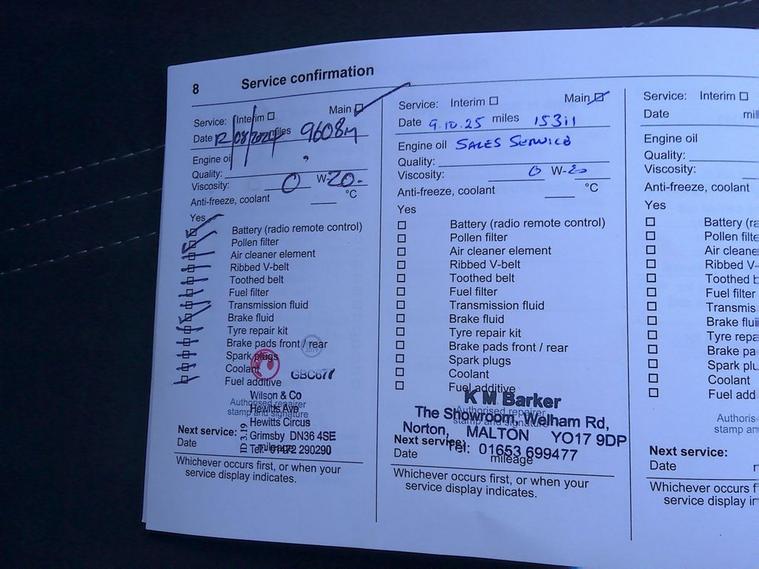 8 Service confirmation
Service: Interim Main
Date 12/08/2024 miles 9608m
Engine oil
Quality:
Viscosity: 0 W-20.
Anti-freeze, coolant °C
Yes
Battery (radio remote control)
Pollen filter
Air cleaner element
Ribbed V-belt
Toothed belt
Fuel filter
Transmission fluid
Brake fluid
Tyre repair kit
Brake pads front / rear
Spark plugs
Coolant
Fuel additive
Authorised repairer
stamp and signature
Wilson & Co
Hewitts Ave
Hewitts Circus
Grimsby DN36 4SE
Tel: 01472 290290
ID 3.19
Next service:
Date mileage
Whichever occurs first, or when your
service display indicates.
Service: Interim Main
Date 9.10.25 miles 15311
Engine oil SALES SERVICE
Quality:
Viscosity: 0 W-20
Anti-freeze, coolant °C
Yes
Battery (radio remote control)
Pollen filter
Air cleaner element
Ribbed V-belt
Toothed belt
Fuel filter
Transmission fluid
Brake fluid
Tyre repair kit
Brake pads front / rear
Spark plugs
Coolant
Fuel additive
Authorised repairer
stamp and signature
K M Barker
The Showroom, Welham Rd,
Norton, MALTON YO17 9DP
Tel: 01653 699477
Next service:
Date mileage
Whichever occurs first, or when your
service display indicates.
Service: Interim
Date mil
Engine oil
Quality:
Viscosity:
Anti-freeze, coolant
Yes
Battery (ra
Pollen filte
Air cleane
Ribbed V-b
Toothed b
Fuel filter
Transmis
Brake flui
Tyre repa
Brake pa
Spark plu
Coolant
Fuel add
Authoris
stamp an
Next service:
Date
Whichever occurs f
service display in